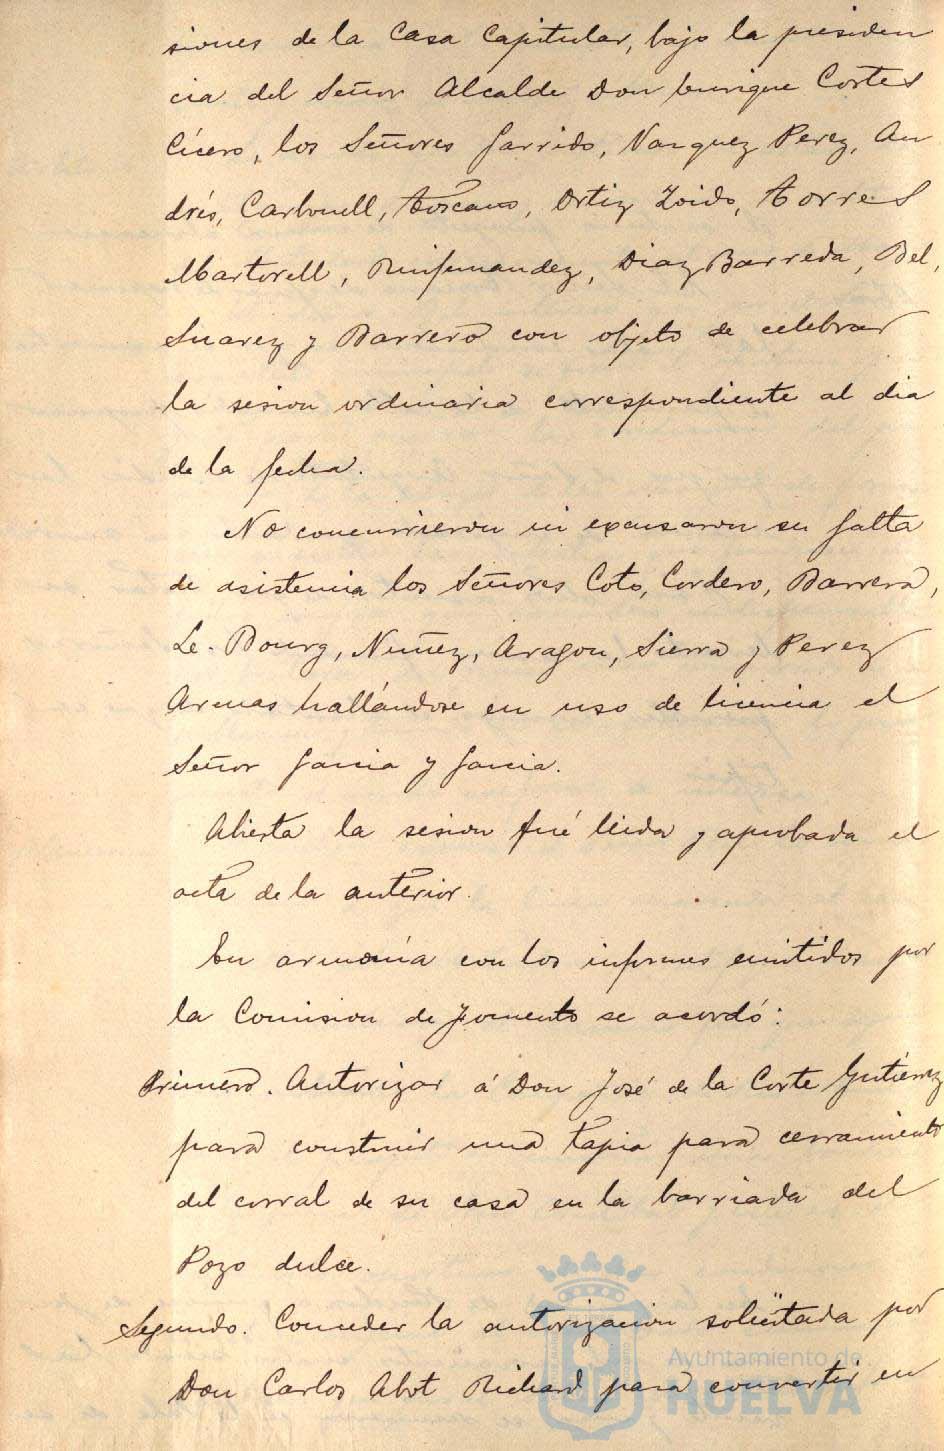 siones de la Casa Capitular, bajo la presiden
cia del Señor Alcalde Don Enrique Cortes
Cícero, los Señores Garrido, Vazquez Perez, An
drés, Carbonell, Toscano, Ortiz Zoido, Torres
Martorell, Ruifernandez, Diaz Barreda, Bel,
Suarez y Barrero con objeto de celebrar
la sesion ordinaria correspondiente al dia
de la fecha.
No concurrieron ni excusaron su falta
de asistencia los Señores Coto, Cordero, Barrera,
Le-Bourg, Nuñez, Aragon, Sierra y Perez
Armas hallándose en uso de licencia el
Señor Garcia y Garcia.
Abierta la sesion fué leida y aprobada el
acta de la anterior.
En armonía con los informes emitidos por
la Comision de Fomento se acordó:
Primero. Autorizar á Don José de la Corte Gutiérrez
para construir una tapia para cerramiento
del corral de su casa en la barriada del
Pozo dulce.
Segundo. Conceder la autorizacion solicitada por
Don Carlos Abot Richard para convertir en
Ayuntamiento de
HUELVA